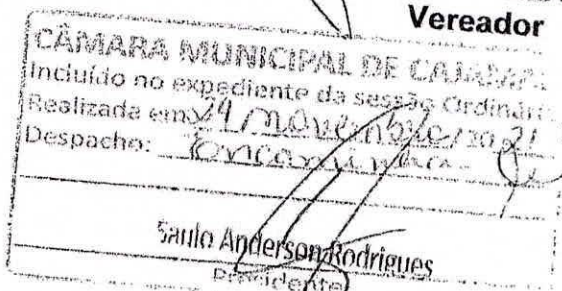 Vereador
CÂMARA MUNICIPAL DE
Incluído no expediente da sessão Ordinária
Realizada em 24/novembro/2021
Despacho:
Saulo Anderson Rodrigues
Presidente